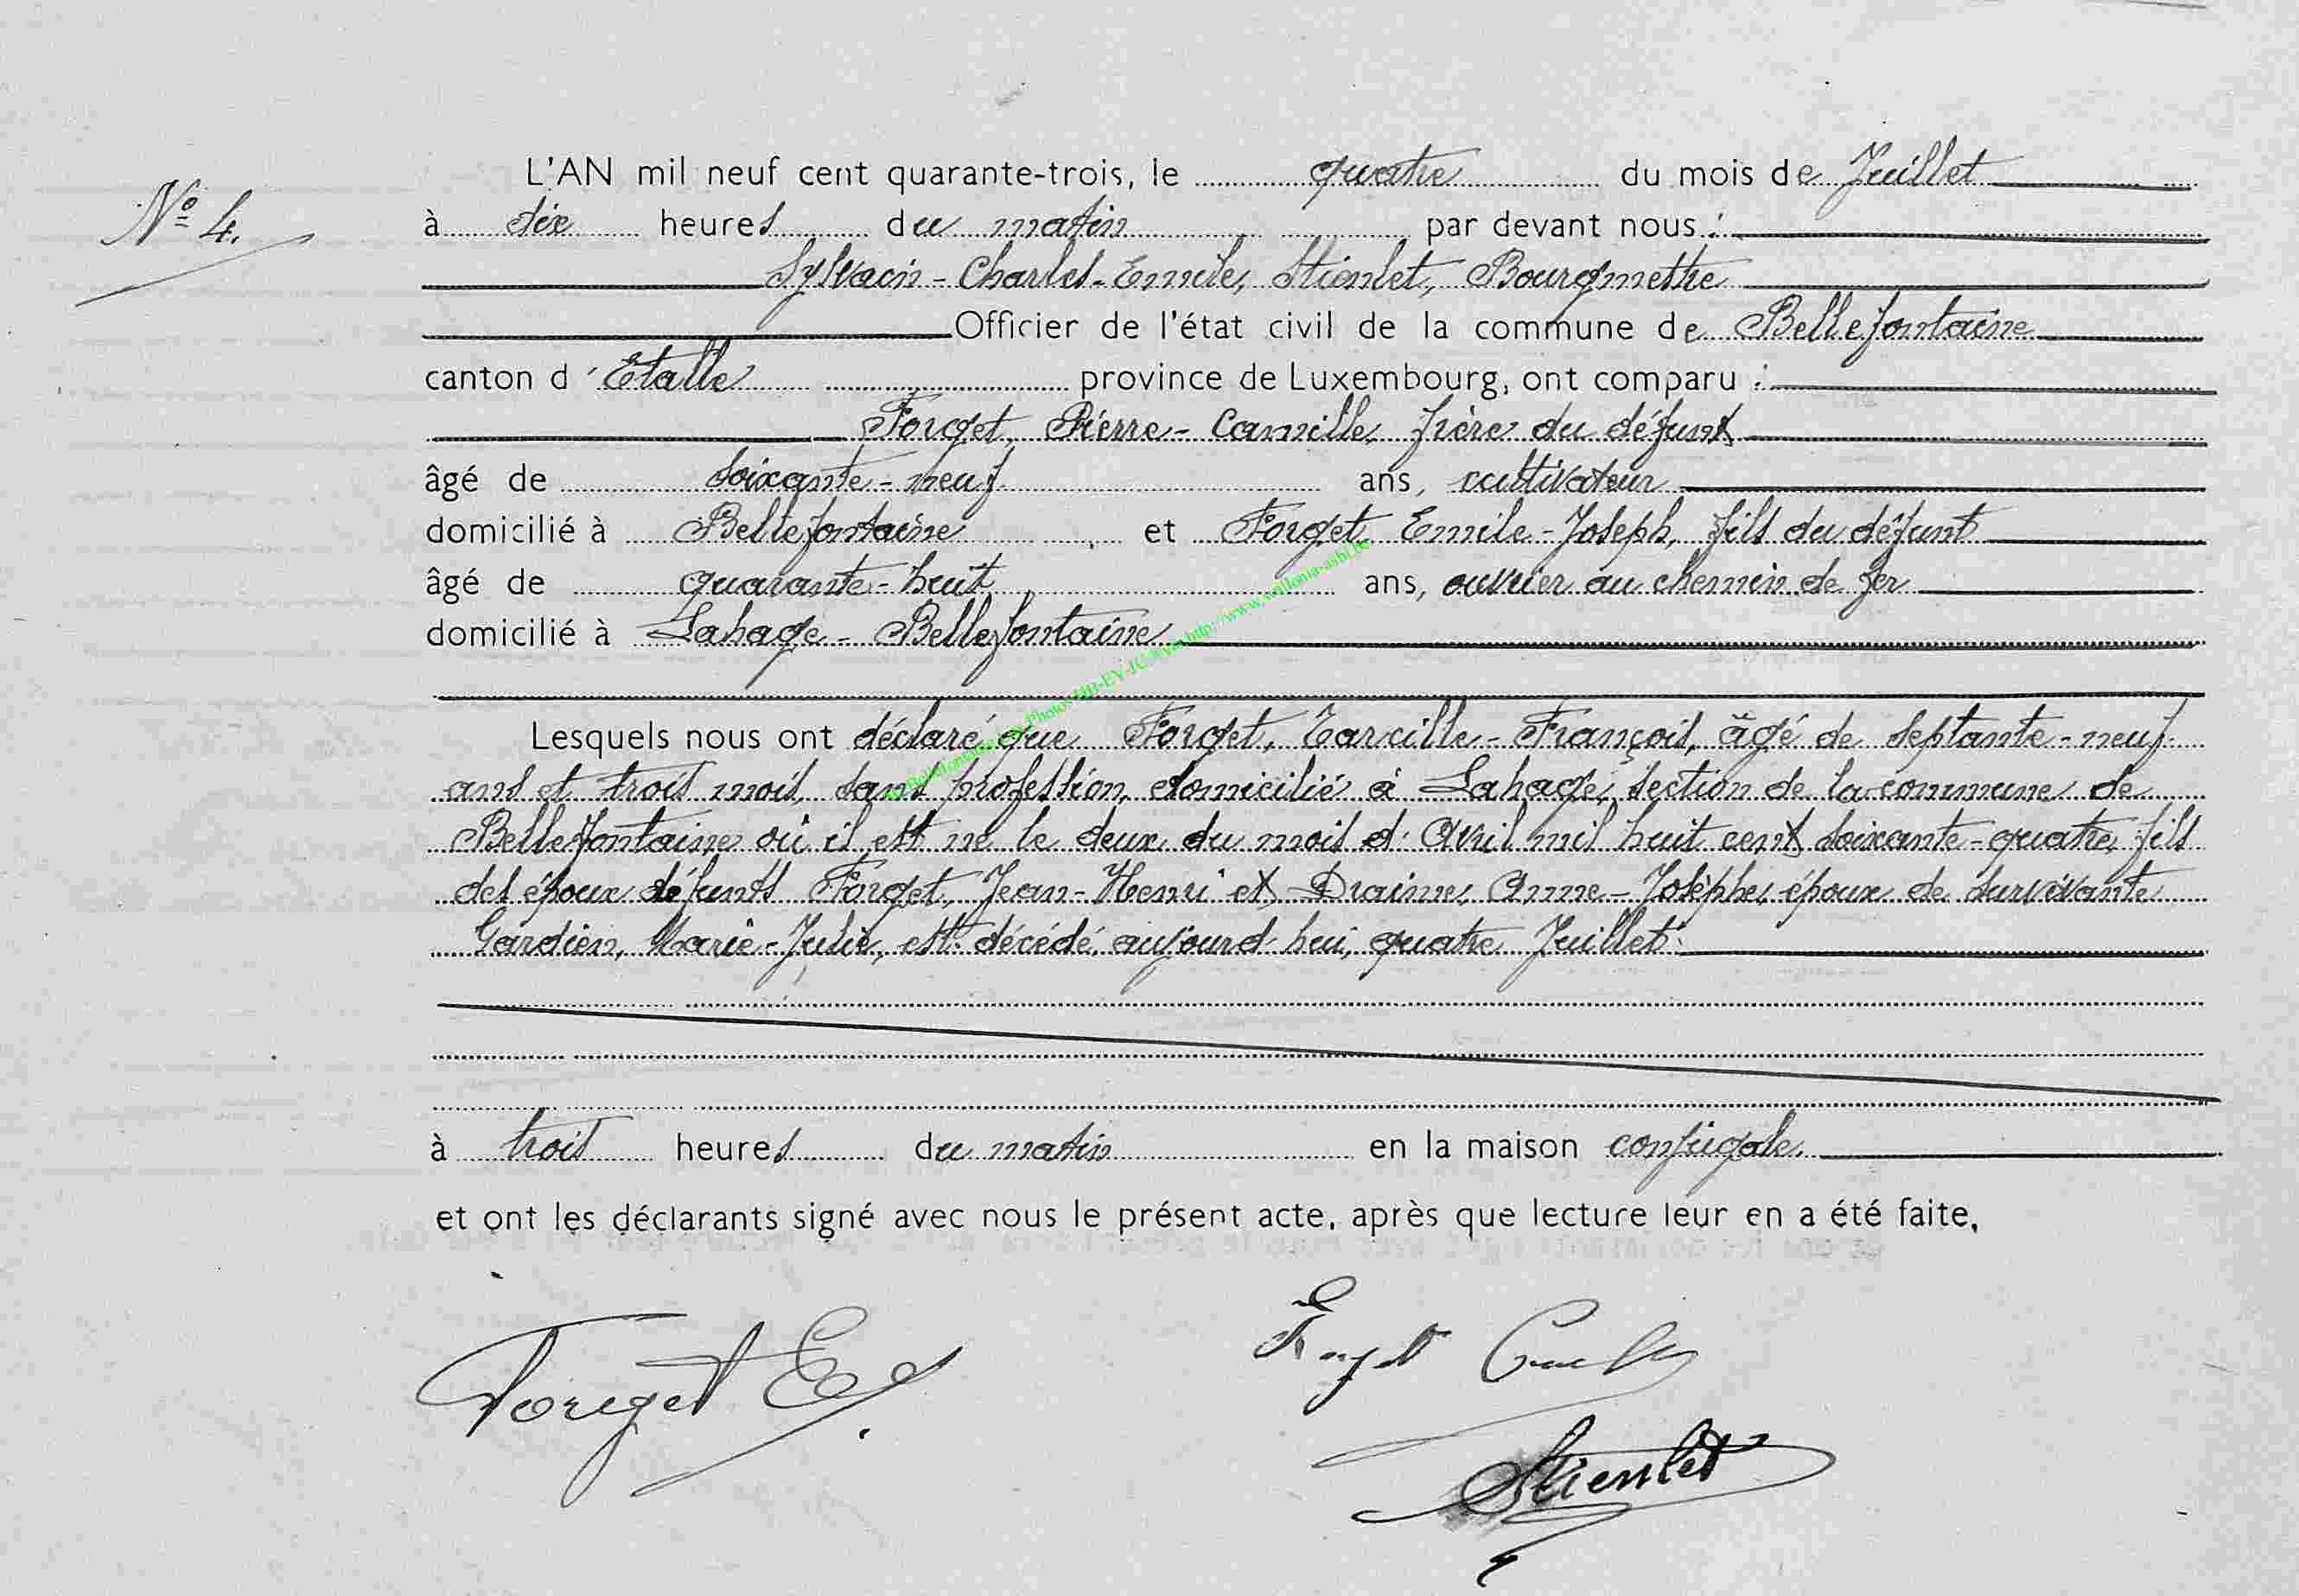 L'AN mil neuf cent quarante-trois, le quatre du mois de Juillet
N° 4.
à dix heures du matin par devant nous :
Sylvain-Charles-Emile, Stienlet, Bourgmestre
Officier de l'état civil de la commune de Bellefontaine
canton d'Etalle province de Luxembourg, ont comparu :
Forget, Pierre-Camille, frère du défunt
âgé de soixante-neuf ans, cultivateur
domicilié à Bellefontaine, et Forget, Emile-Joseph, fils du défunt
âgé de quarante-huit ans, ouvrier au chemin de fer
domicilié à Lahage-Bellefontaine
Lesquels nous ont déclaré que Forget, Tarcille-François, âgé de septante-neuf
ans et trois mois, sans profession, domicilié à Lahage, section de la commune de
Bellefontaine où il est né le deux du mois d'Avril mil huit cent soixante-quatre, fils
des époux défunts Forget, Jean-Henri et Draime, Anne-Josèphe, époux de survivante
Gardien, Marie-Julie, est décédé aujourd'hui, quatre Juillet
à trois heures du matin en la maison conjugale.
et ont les déclarants signé avec nous le présent acte, après que lecture leur en a été faite,
Forget E
Forget Camille
Stienlet